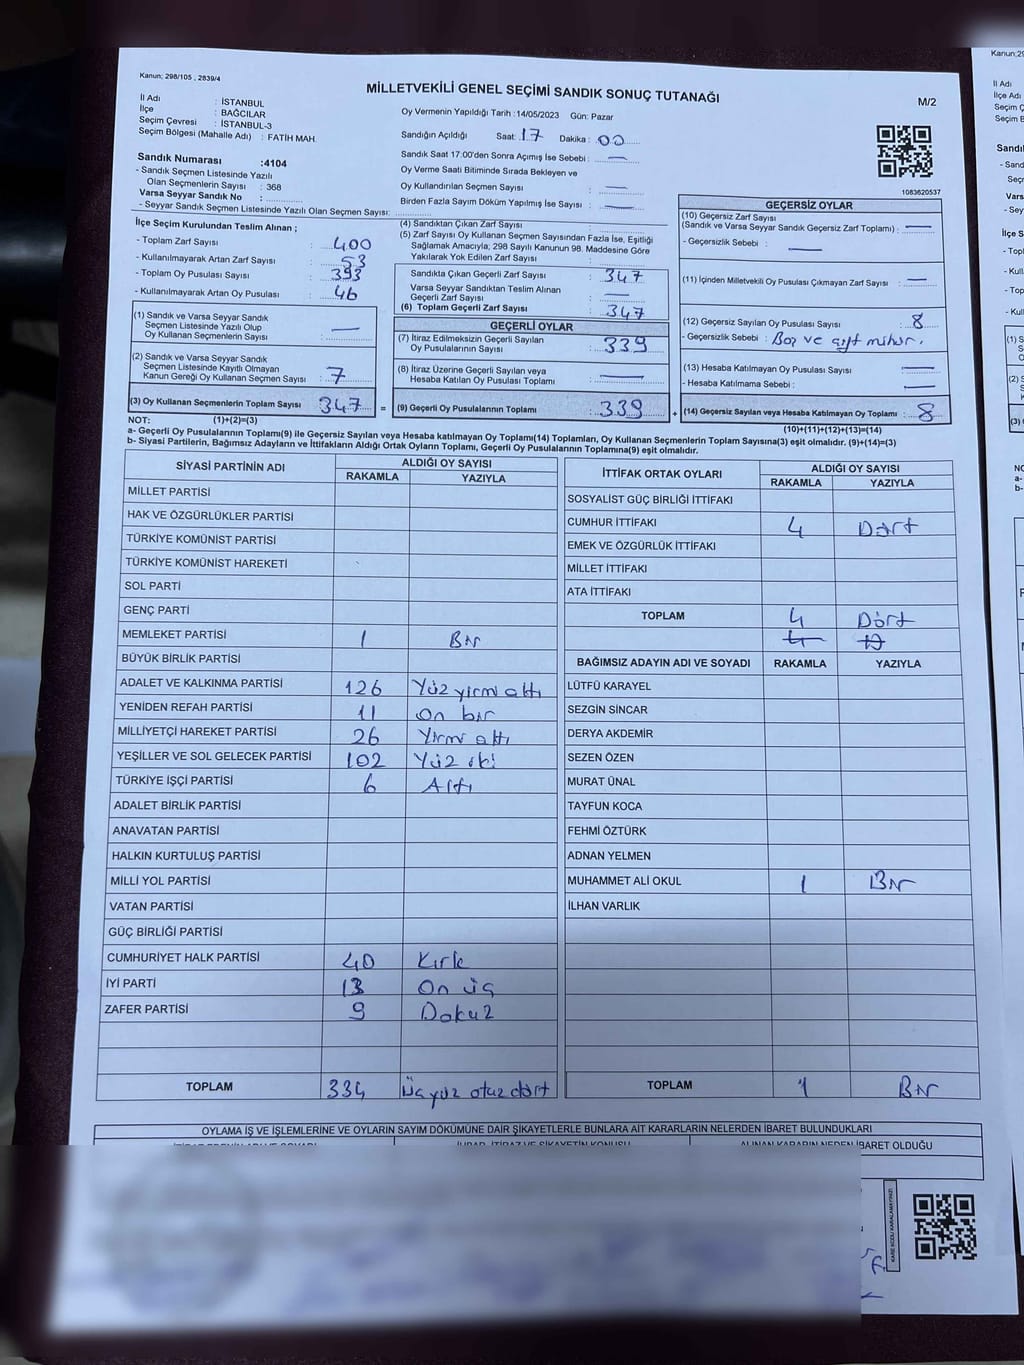 Kanun; 298/105 , 2839/4
MİLLETVEKİLİ GENEL SEÇİMİ SANDIK SONUÇ TUTANAĞI
M/2
İl Adı : İSTANBUL
İlçe : BAĞCILAR
Seçim Çevresi : İSTANBUL-3
Seçim Bölgesi (Mahalle Adı) : FATİH MAH.
Oy Vermenin Yapıldığı Tarih :14/05/2023 Gün: Pazar
Sandığın Açıldığı Saat: 17 Dakika : 00
Sandık Saat 17.00'den Sonra Açımış İse Sebebi : —
Oy Verme Saati Bitiminde Sırada Bekleyen ve
Oy Kullandırılan Seçmen Sayısı : —
Birden Fazla Sayım Döküm Yapılmış İse Sayısı : —
Sandık Numarası :4104
- Sandık Seçmen Listesinde Yazılı
Olan Seçmenlerin Sayısı : 368
Varsa Seyyar Sandık No :
- Seyyar Sandık Seçmen Listesinde Yazılı Olan Seçmen Sayısı:
1083620537
İlçe Seçim Kurulundan Teslim Alınan ;
- Toplam Zarf Sayısı : 400
- Kullanılmayarak Artan Zarf Sayısı : 53
- Toplam Oy Pusulası Sayısı : 393
- Kullanılmayarak Artan Oy Pusulası : 46
(1) Sandık ve Varsa Seyyar Sandık
Seçmen Listesinde Yazılı Olup
Oy Kullanan Seçmenlerin Sayısı : —
(2) Sandık ve Varsa Seyyar Sandık
Seçmen Listesinde Kayıtlı Olmayan
Kanun Gereği Oy Kullanan Seçmen Sayısı : 7
(3) Oy Kullanan Seçmenlerin Toplam Sayısı : 347 =
(4) Sandıktan Çıkan Zarf Sayısı :
(5) Zarf Sayısı Oy Kullanan Seçmen Sayısından Fazla İse, Eşitliği
Sağlamak Amacıyla; 298 Sayılı Kanunun 98. Maddesine Göre
Yakılarak Yok Edilen Zarf Sayısı :
Sandıkta Çıkan Geçerli Zarf Sayısı : 347
Varsa Seyyar Sandıktan Teslim Alınan
Geçerli Zarf Sayısı : —
(6) Toplam Geçerli Zarf Sayısı : 347
GEÇERLİ OYLAR
(7) İtiraz Edilmeksizin Geçerli Sayılan
Oy Pusulalarının Sayısı : 339
(8) İtiraz Üzerine Geçerli Sayılan veya
Hesaba Katılan Oy Pusulası Toplamı : —
(9) Geçerli Oy Pusulalarının Toplamı : 339 +
GEÇERSİZ OYLAR
(10) Geçersiz Zarf Sayısı
(Sandık ve Varsa Seyyar Sandık Geçersiz Zarf Toplamı) : —
- Geçersizlik Sebebi : —
(11) İçinden Milletvekili Oy Pusulası Çıkmayan Zarf Sayısı : —
(12) Geçersiz Sayılan Oy Pusulası Sayısı : 8
- Geçersizlik Sebebi : Boş ve çift mühür.
(13) Hesaba Katılmayan Oy Pusulası Sayısı : —
- Hesaba Katılmama Sebebi : —
(14) Geçersiz Sayılan veya Hesaba Katılmayan Oy Toplamı : 8
NOT: (1)+(2)=(3)
(10)+(11)+(12)+(13)=(14)
a- Geçerli Oy Pusulalarının Toplamı(9) ile Geçersiz Sayılan veya Hesaba katılmayan Oy Toplamı(14) Toplamları, Oy Kullanan Seçmenlerin Toplam Sayısına(3) eşit olmalıdır. (9)+(14)=(3)
b- Siyasi Partilerin, Bağımsız Adayların ve İttifakların Aldığı Ortak Oyların Toplamı, Geçerli Oy Pusulalarının Toplamına(9) eşit olmalıdır.
SİYASİ PARTİNİN ADI
ALDIĞI OY SAYISI
RAKAMLA YAZIYLA
MİLLET PARTİSİ
HAK VE ÖZGÜRLÜKLER PARTİSİ
TÜRKİYE KOMÜNİST PARTİSİ
TÜRKİYE KOMÜNİST HAREKETİ
SOL PARTİ
GENÇ PARTİ
MEMLEKET PARTİSİ 1 Bir
BÜYÜK BİRLİK PARTİSİ
ADALET VE KALKINMA PARTİSİ 126 Yüz yirmi altı
YENİDEN REFAH PARTİSİ 11 On bir
MİLLİYETÇİ HAREKET PARTİSİ 26 Yirmi altı
YEŞİLLER VE SOL GELECEK PARTİSİ 102 Yüz iki
TÜRKİYE İŞÇİ PARTİSİ 6 Altı
ADALET BİRLİK PARTİSİ
ANAVATAN PARTİSİ
HALKIN KURTULUŞ PARTİSİ
MİLLİ YOL PARTİSİ
VATAN PARTİSİ
GÜÇ BİRLİĞİ PARTİSİ
CUMHURİYET HALK PARTİSİ 40 Kırk
İYİ PARTİ 13 On üç
ZAFER PARTİSİ 9 Dokuz
TOPLAM 334 Üç yüz otuz dört
İTTİFAK ORTAK OYLARI
ALDIĞI OY SAYISI
RAKAMLA YAZIYLA
SOSYALİST GÜÇ BİRLİĞİ İTTİFAKI
CUMHUR İTTİFAKI 4 Dört
EMEK VE ÖZGÜRLÜK İTTİFAKI
MİLLET İTTİFAKI
ATA İTTİFAKI
TOPLAM 4 Dört
BAĞIMSIZ ADAYIN ADI VE SOYADI RAKAMLA YAZIYLA
LÜTFÜ KARAYEL
SEZGİN SİNCAR
DERYA AKDEMİR
SEZEN ÖZEN
MURAT ÜNAL
TAYFUN KOCA
FEHMİ ÖZTÜRK
ADNAN YELMEN
MUHAMMET ALİ OKUL 1 Bir
İLHAN VARLIK
TOPLAM 1 Bir
OYLAMA İŞ VE İŞLEMLERİNE VE OYLARIN SAYIM DÖKÜMÜNE DAİR ŞİKAYETLERLE BUNLARA AİT KARARLARIN NELERDEN İBARET BULUNDUKLARI
ALINAN KARARIN NEDEN İBARET OLDUĞU
KARE KODU KARALAMAYINIZ!